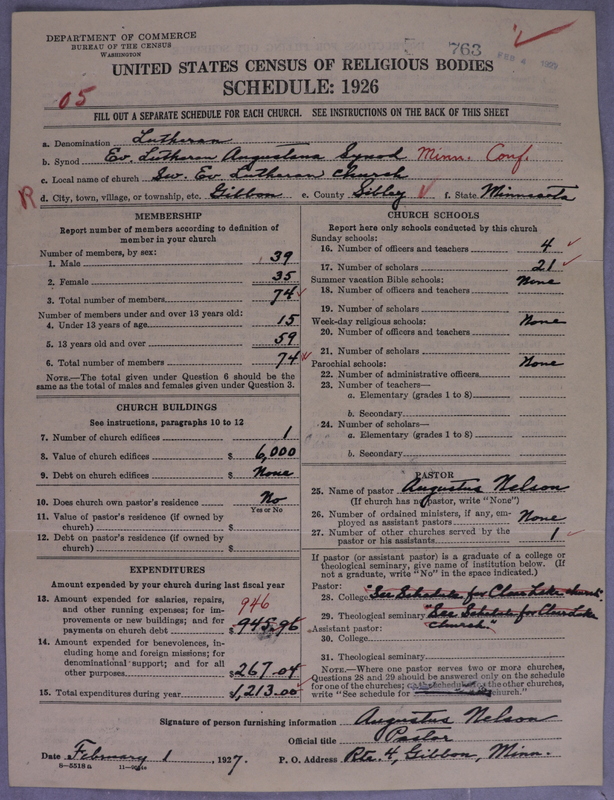 DEPARTMENT OF COMMERCE
BUREAU OF THE CENSUS
WASHINGTON
763
UNITED STATES CENSUS OF RELIGIOUS BODIES
SCHEDULE: 1926
05
FILL OUT A SEPARATE SCHEDULE FOR EACH CHURCH. SEE INSTRUCTIONS ON THE BACK OF THIS SHEET
a. Denomination Lutheran
b. Synod Ev. Lutheran Augustana Synod Minn. Conf.
c. Local name of church Sw. Ev Lutheran Church
R d. City, town, village, or township, etc. Gibbon e. County Sibley f. State Minnesota
MEMBERSHIP
Report number of members according to definition of
member in your church
Number of members, by sex:
1. Male 39
2. Female 35
3. Total number of members 74
Number of members under and over 13 years old:
4. Under 13 years of age 15
5. 13 years old and over 59
6. Total number of members 74
NOTE.—The total given under Question 6 should be the
same as the total of males and females given under Question 3.
CHURCH BUILDINGS
See instructions, paragraphs 10 to 12
7. Number of church edifices 1
8. Value of church edifices $ 6,000
9. Debt on church edifices $ None
10. Does church own pastor's residence No
Yes or No
11. Value of pastor's residence (if owned by
church) $
12. Debt on pastor's residence (if owned by
church) $
EXPENDITURES
Amount expended by your church during last fiscal year
13. Amount expended for salaries, repairs,
and other running expenses; for im-
provements or new buildings; and for
payments on church debt $ 945.96
946
14. Amount expended for benevolences, in-
cluding home and foreign missions; for
denominational support; and for all
other purposes $ 267.04
15. Total expenditures during year $ 1,213.00
CHURCH SCHOOLS
Report here only schools conducted by this church
Sunday schools:
16. Number of officers and teachers 4
17. Number of scholars 21
Summer vacation Bible schools: None
18. Number of officers and teachers
19. Number of scholars
Week-day religious schools: None
20. Number of officers and teachers
21. Number of scholars
Parochial schools: None
22. Number of administrative officers
23. Number of teachers—
a. Elementary (grades 1 to 8)
b. Secondary
24. Number of scholars—
a. Elementary (grades 1 to 8)
b. Secondary
PASTOR
25. Name of pastor Augustus Nelson
(If church has no pastor, write "None")
26. Number of ordained ministers, if any, em-
ployed as assistant pastors None
27. Number of other churches served by the
pastor or his assistants 1
If pastor (or assistant pastor) is a graduate of a college or
theological seminary, give name of institution below. (If
not a graduate, write "No" in the space indicated.)
Pastor:
28. College "See Schedule for Clear Lake church"
29. Theological seminary "See Schedule for Clear Lake
Church"
Assistant pastor:
30. College
31. Theological seminary
NOTE.—Where one pastor serves two or more churches,
Questions 28 and 29 should be answered only on the schedule
for one of the churches; on the schedules for the other churches,
write "See schedule for church."
Signature of person furnishing information Augustus Nelson
Official title Pastor
Date February 1, 1927. P. O. Address Rte. 4, Gibbon, Minn.
8—5518 a